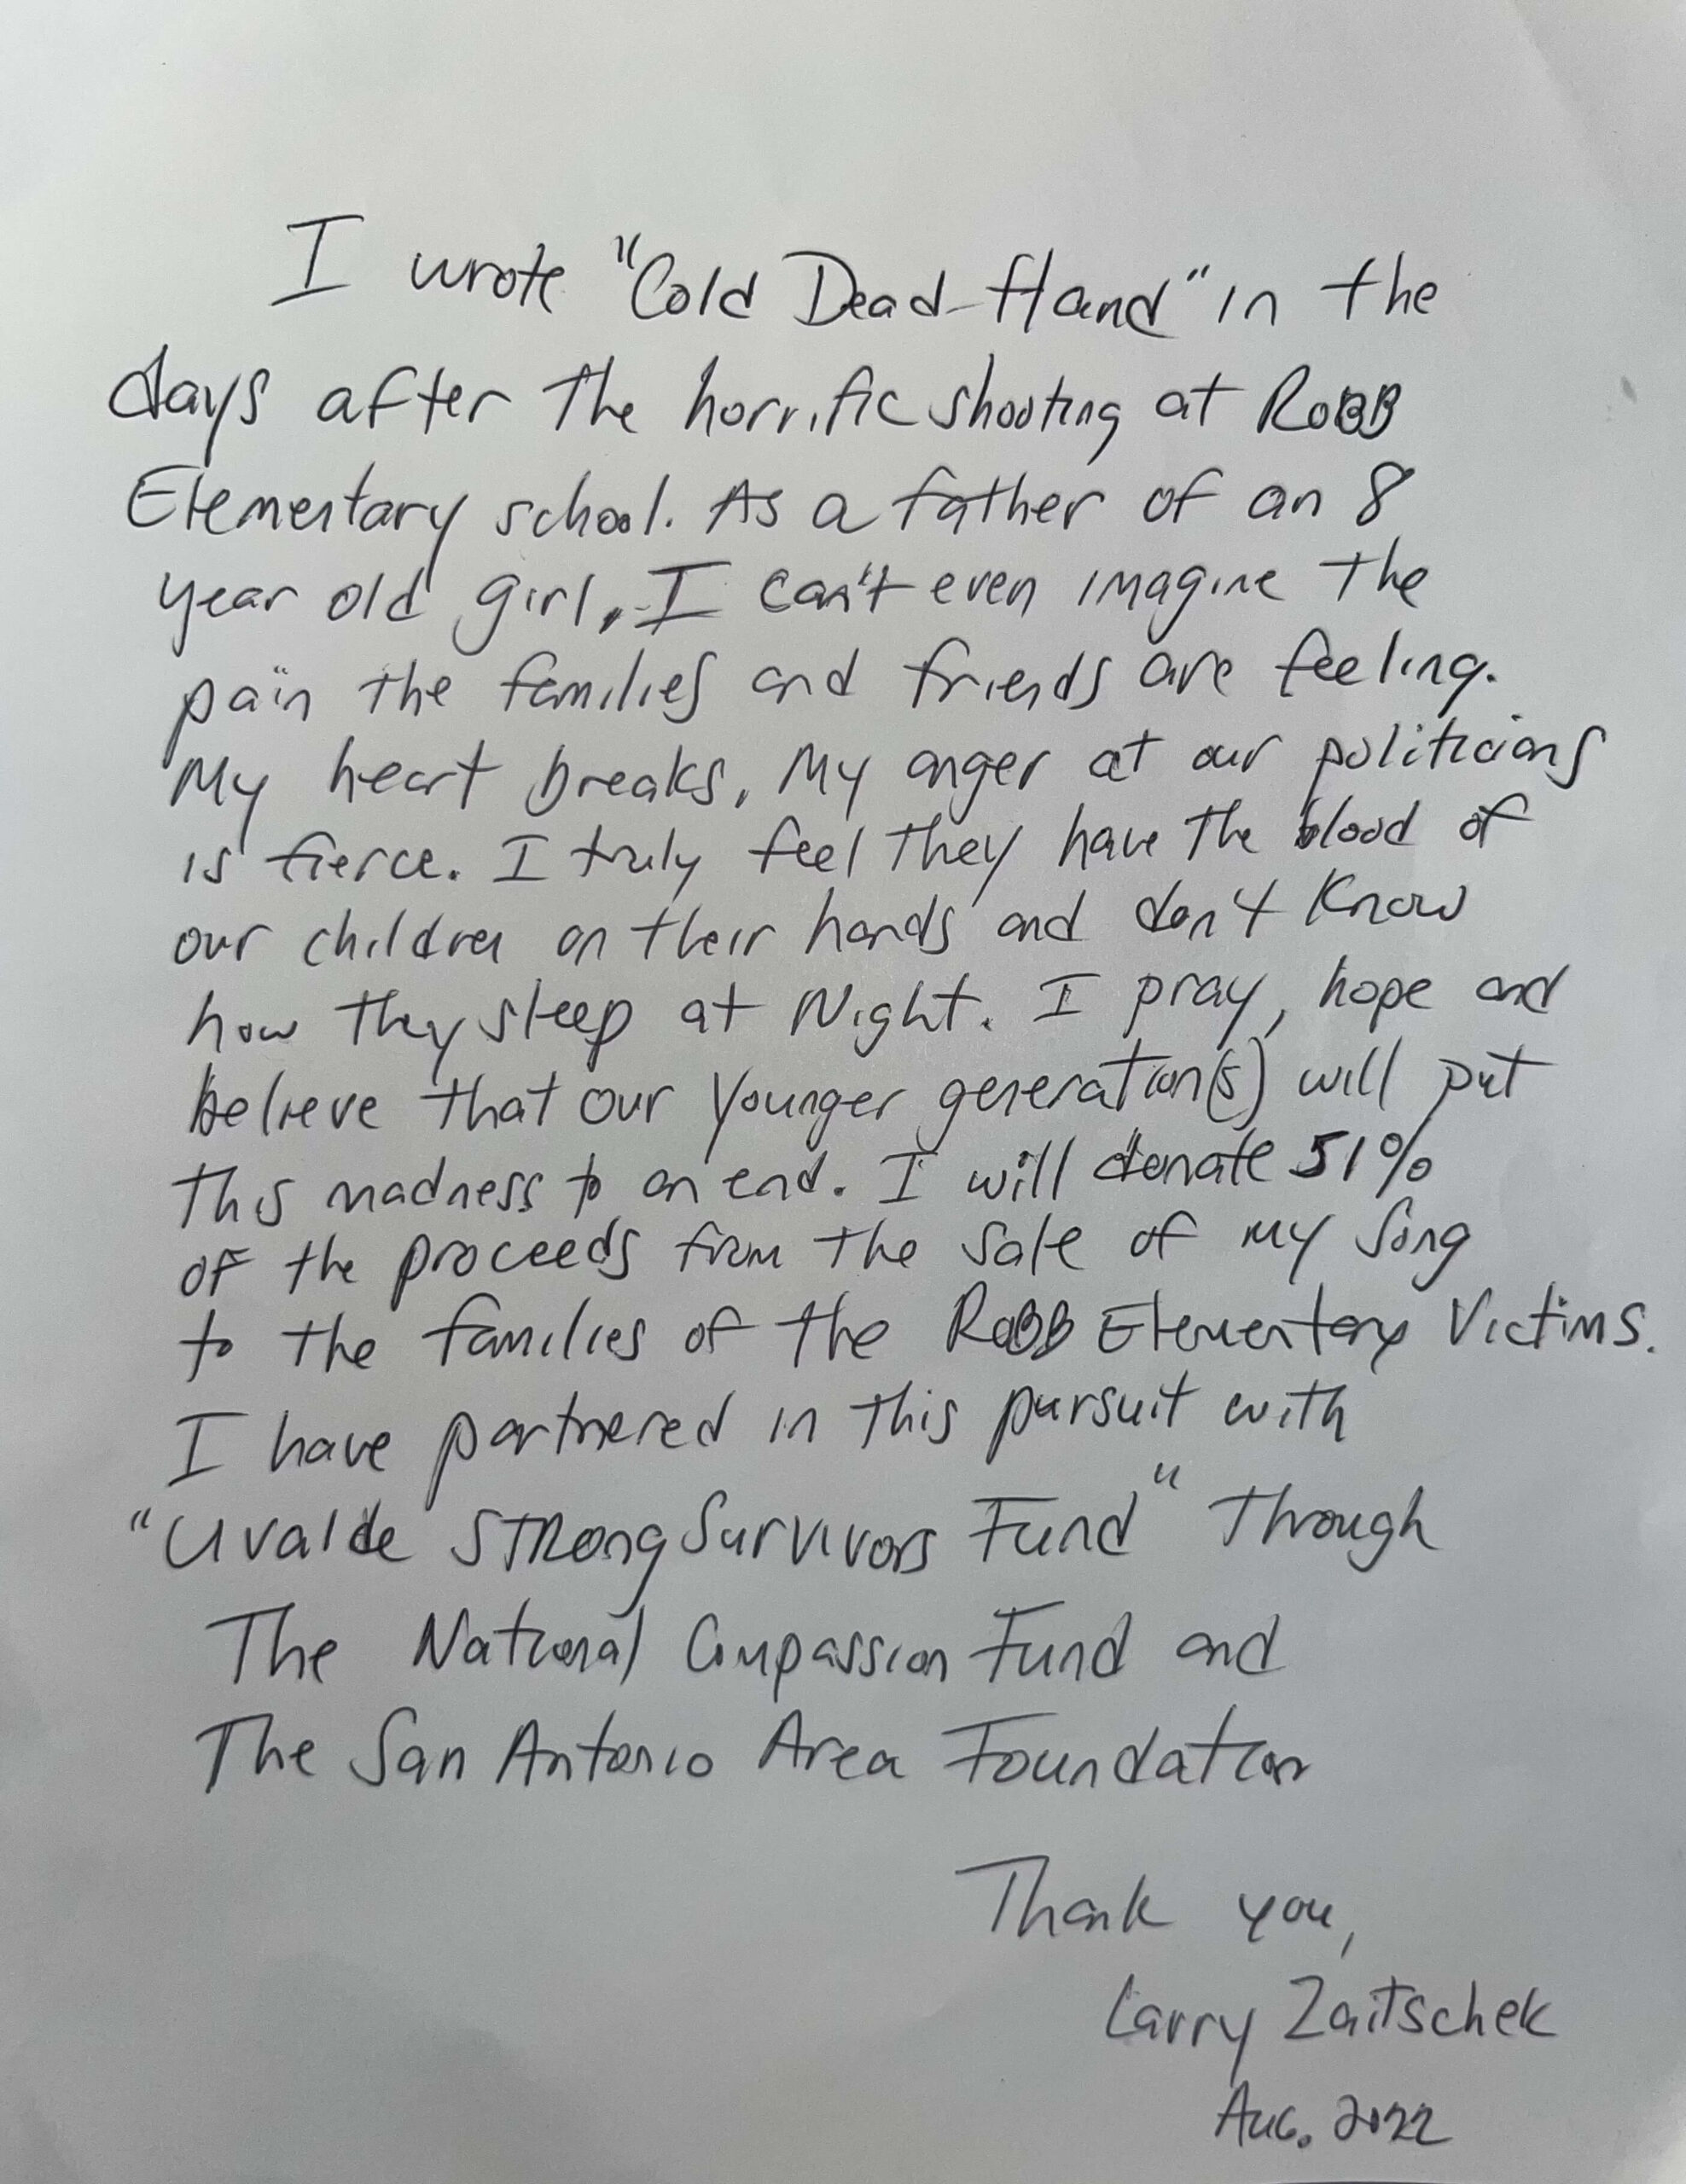 I wrote "Cold Dead Hand" in the
days after the horrific shooting at RoBB
Elementary school. As a father of an 8
year old girl, I can't even imagine the
pain the families and friends are feeling.
My heart breaks, My anger at our politicians
is fierce. I truly feel they have the blood of
our children on their hands and don't know
how they sleep at Night. I pray, hope and
believe that our younger generation(s) will put
this madness to an end. I will donate 51%
of the proceeds from the sale of my song
to the families of the RoBB Elementary Victims.
I have partnered in this pursuit with
"Uvalde STRong Survivors Fund" Through
The National Compassion Fund and
The San Antonio Area Foundation
Thank you,
Larry Zaitschek
Aug. 2022